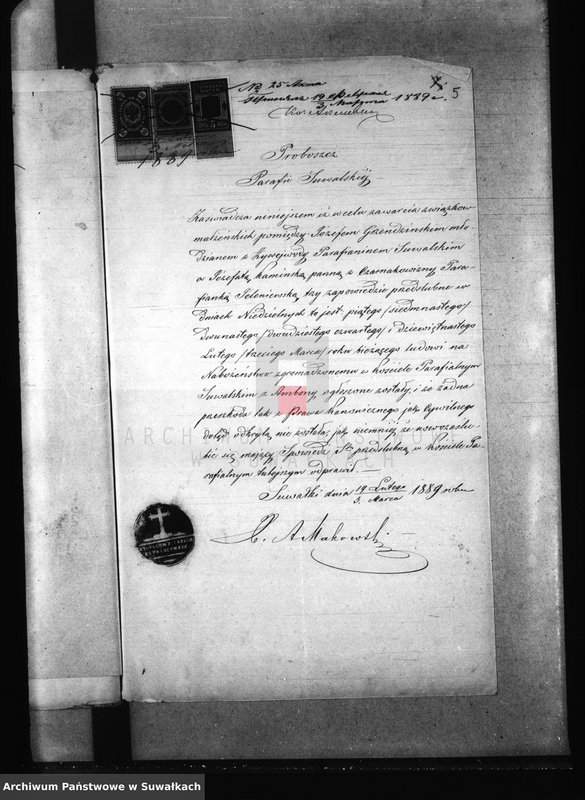 № 25 Anna
19 3 Marca 1889 r. 5
1889
Proboszcz
Parafii Suwalskiéj
Zaświadcza niniejszem iż w celu zawarcia związków
małżeńskich pomiędzy Józefem Grzendzinskim mło
dzianem z Żywejwody Parafianinem Suwalskim
a Józefatą Kaminską panną z Czarnakowizny Para
fianką Jeleniewską trzy zapowiedzie przedślubne w
dniach Niedzielnych to jest: piątego /siedmnastego/
dwunastego /dwudziestego czwartego/ i dziewiętnastego
Lutego /trzeciego Marca/ roku bieżącego ludowi na
Nabożeństwo zgromadzonemu w Kościele Parafialnym
Suwalskim z Ambony ogłoszone zostały, i że żadna
przeszkoda tak z Prawa kanonicznego jako Cywilnego
dotąd odkrytą nie została; jak niemniej że nowozaślu-
bić się mający Spowiedź Stą przedślubną w Kościele Pa-
rafialnym tutejszym odprawił. —
Suwałki dnia 19 Lutego / 3 Marca 1889 roku
X. A Makowski
ARCHIWUM PAŃSTWOWE
W SUWAŁKACH
Archiwum Państwowe w Suwałkach